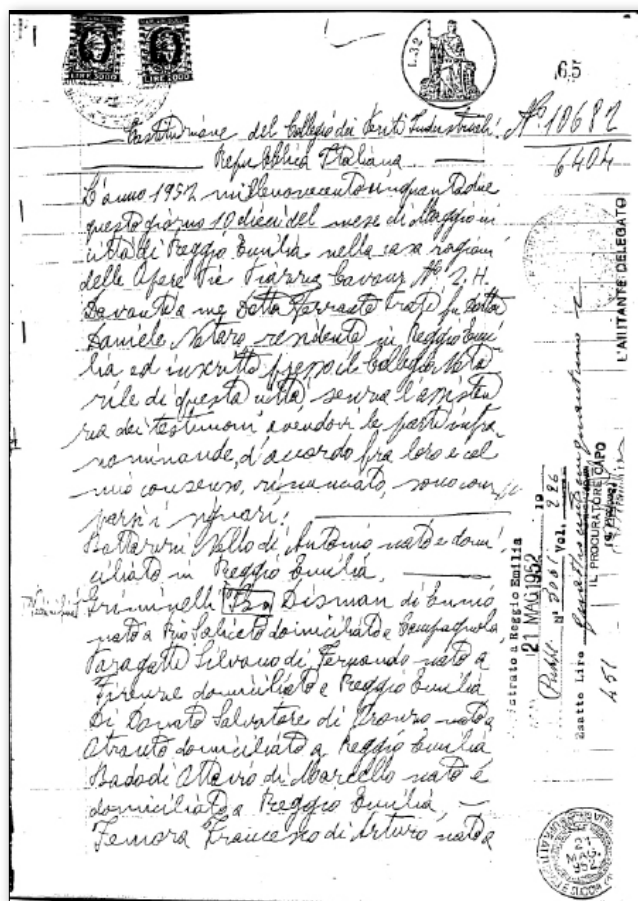 LIRE 3000
LIRE 1000
L. 32
65
Costituzione del Collegio dei Periti Industriali. N° 10682
6404
Repubblica Italiana
L'anno 1952 millenovecentocinquantadue
questo giorno 10 dieci del mese di Maggio in
città di Reggio Emilia nella casa ragioni
delle Opere Pie Piazza Cavour N° 2. H.
Davanti a me Dottor Ferrante fu Dottor
Daniele Notaro, residente in Reggio Emi
lia ed inscritto presso il Collegio Nota
rile di questa città, senza l'assisten
za dei testimoni avendovi le parti infra
nominande, d'accordo fra loro e col
mio consenso, rinunciato, sono com
parsi i signori:
Nello di Antonio nato e domi
ciliato in Reggio Emilia,
Criminelli Disman di Ennio
nato a Rio Saliceto domiciliato a Campagnola,
Silvano di Fernando nato a
Firenze domiciliato a Reggio Emilia
Di Donato Salvatore di Oronzo nato a
Otranto domiciliato a Reggio Emilia
Badodi Ottavio di Marcello nato e
domiciliato a Reggio Emilia,
Francesco di Arturo nato a
istrato a Reggio Emilia
21 MAG 1952
N° Vol. 286
Esatte Lire
IL PROCURATORE CAPO
L'AIUTANTE DELEGATO
451
21
MAG.
952